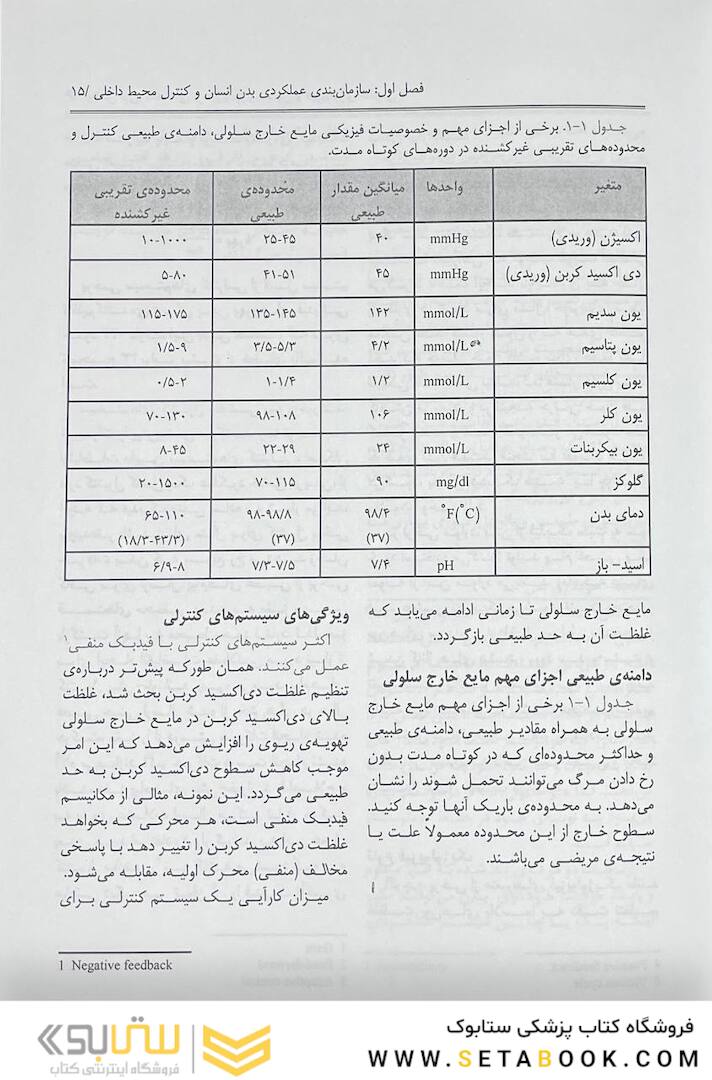 فصل اول: سازمان‌بندی عملکردی بدن انسان و کنترل محیط داخلی /۱۵
جدول ۱-۱. برخی از اجزای مهم و خصوصیات فیزیکی مایع خارج سلولی، دامنه‌ی طبیعی کنترل و
محدوده‌های تقریبی غیرکشنده در دوره‌های کوتاه مدت.
متغیر واحدها میانگین مقدار طبیعی محدوده‌ی طبیعی محدوده‌ی تقریبی غیرکشنده
اکسیژن (وریدی) mmHg ۴۰ ۲۵-۴۵ ۱۰-۱۰۰۰
دی اکسید کربن (وریدی) mmHg ۴۵ ۴۱-۵۱ ۵-۸۰
یون سدیم mmol/L ۱۴۲ ۱۳۵-۱۴۵ ۱۱۵-۱۷۵
یون پتاسیم mmol/L ۴/۲ ۳/۵-۵/۳ ۱/۵-۹
یون کلسیم mmol/L ۱/۲ ۱-۱/۴ ۰/۵-۲
یون کلر mmol/L ۱۰۶ ۹۸-۱۰۸ ۷۰-۱۳۰
یون بیکربنات mmol/L ۲۴ ۲۲-۲۹ ۸-۴۵
گلوکز mg/dl ۹۰ ۷۰-۱۱۵ ۲۰-۱۵۰۰
دمای بدن °F(°C) ۹۸/۴ ۹۸-۹۸/۸ ۶۵-۱۱۰
(۳۷) (۳۷) (۱۸/۳-۴۳/۳)
اسید- باز pH ۷/۴ ۷/۳-۷/۵ ۶/۹-۸
مایع خارج سلولی تا زمانی ادامه می‌یابد که
غلظت آن به حد طبیعی بازگردد.
دامنه‌ی طبیعی اجزای مهم مایع خارج سلولی
جدول ۱-۱ برخی از اجزای مهم مایع خارج
سلولی به همراه مقادیر طبیعی، دامنه‌ی طبیعی
و حداکثر محدوده‌ای که در کوتاه مدت بدون
رخ دادن مرگ می‌توانند تحمل شوند را نشان
می‌دهد. به محدوده‌ی باریک آنها توجه کنید.
سطوح خارج از این محدوده معمولاً علت یا
نتیجه‌ی مریضی می‌باشند.
ویژگی‌های سیستم‌های کنترلی
اکثر سیستم‌های کنترلی با فیدبک منفی۱
عمل می‌کنند. همان طورکه پیش‌تر درباره‌ی
تنظیم غلظت دی‌اکسید کربن بحث شد، غلظت
بالای دی‌اکسید کربن در مایع خارج سلولی
تهویه‌ی ریوی را افزایش می‌دهد که این امر
موجب کاهش سطوح دی‌اکسید کربن به حد
طبیعی می‌گردد. این نمونه، مثالی از مکانیسم
فیدبک منفی است، هر محرکی که بخواهد
غلظت دی‌اکسید کربن را تغییر دهد با پاسخی
مخالف (منفی) محرک اولیه، مقابله می‌شود.
میزان کارآیی یک سیستم کنترلی برای
1 Negative feedback
فروشگاه کتاب پزشکی ستابوک
WWW.SETABOOK.COM
ستابوک
فروشگاه اینترنتی کتاب